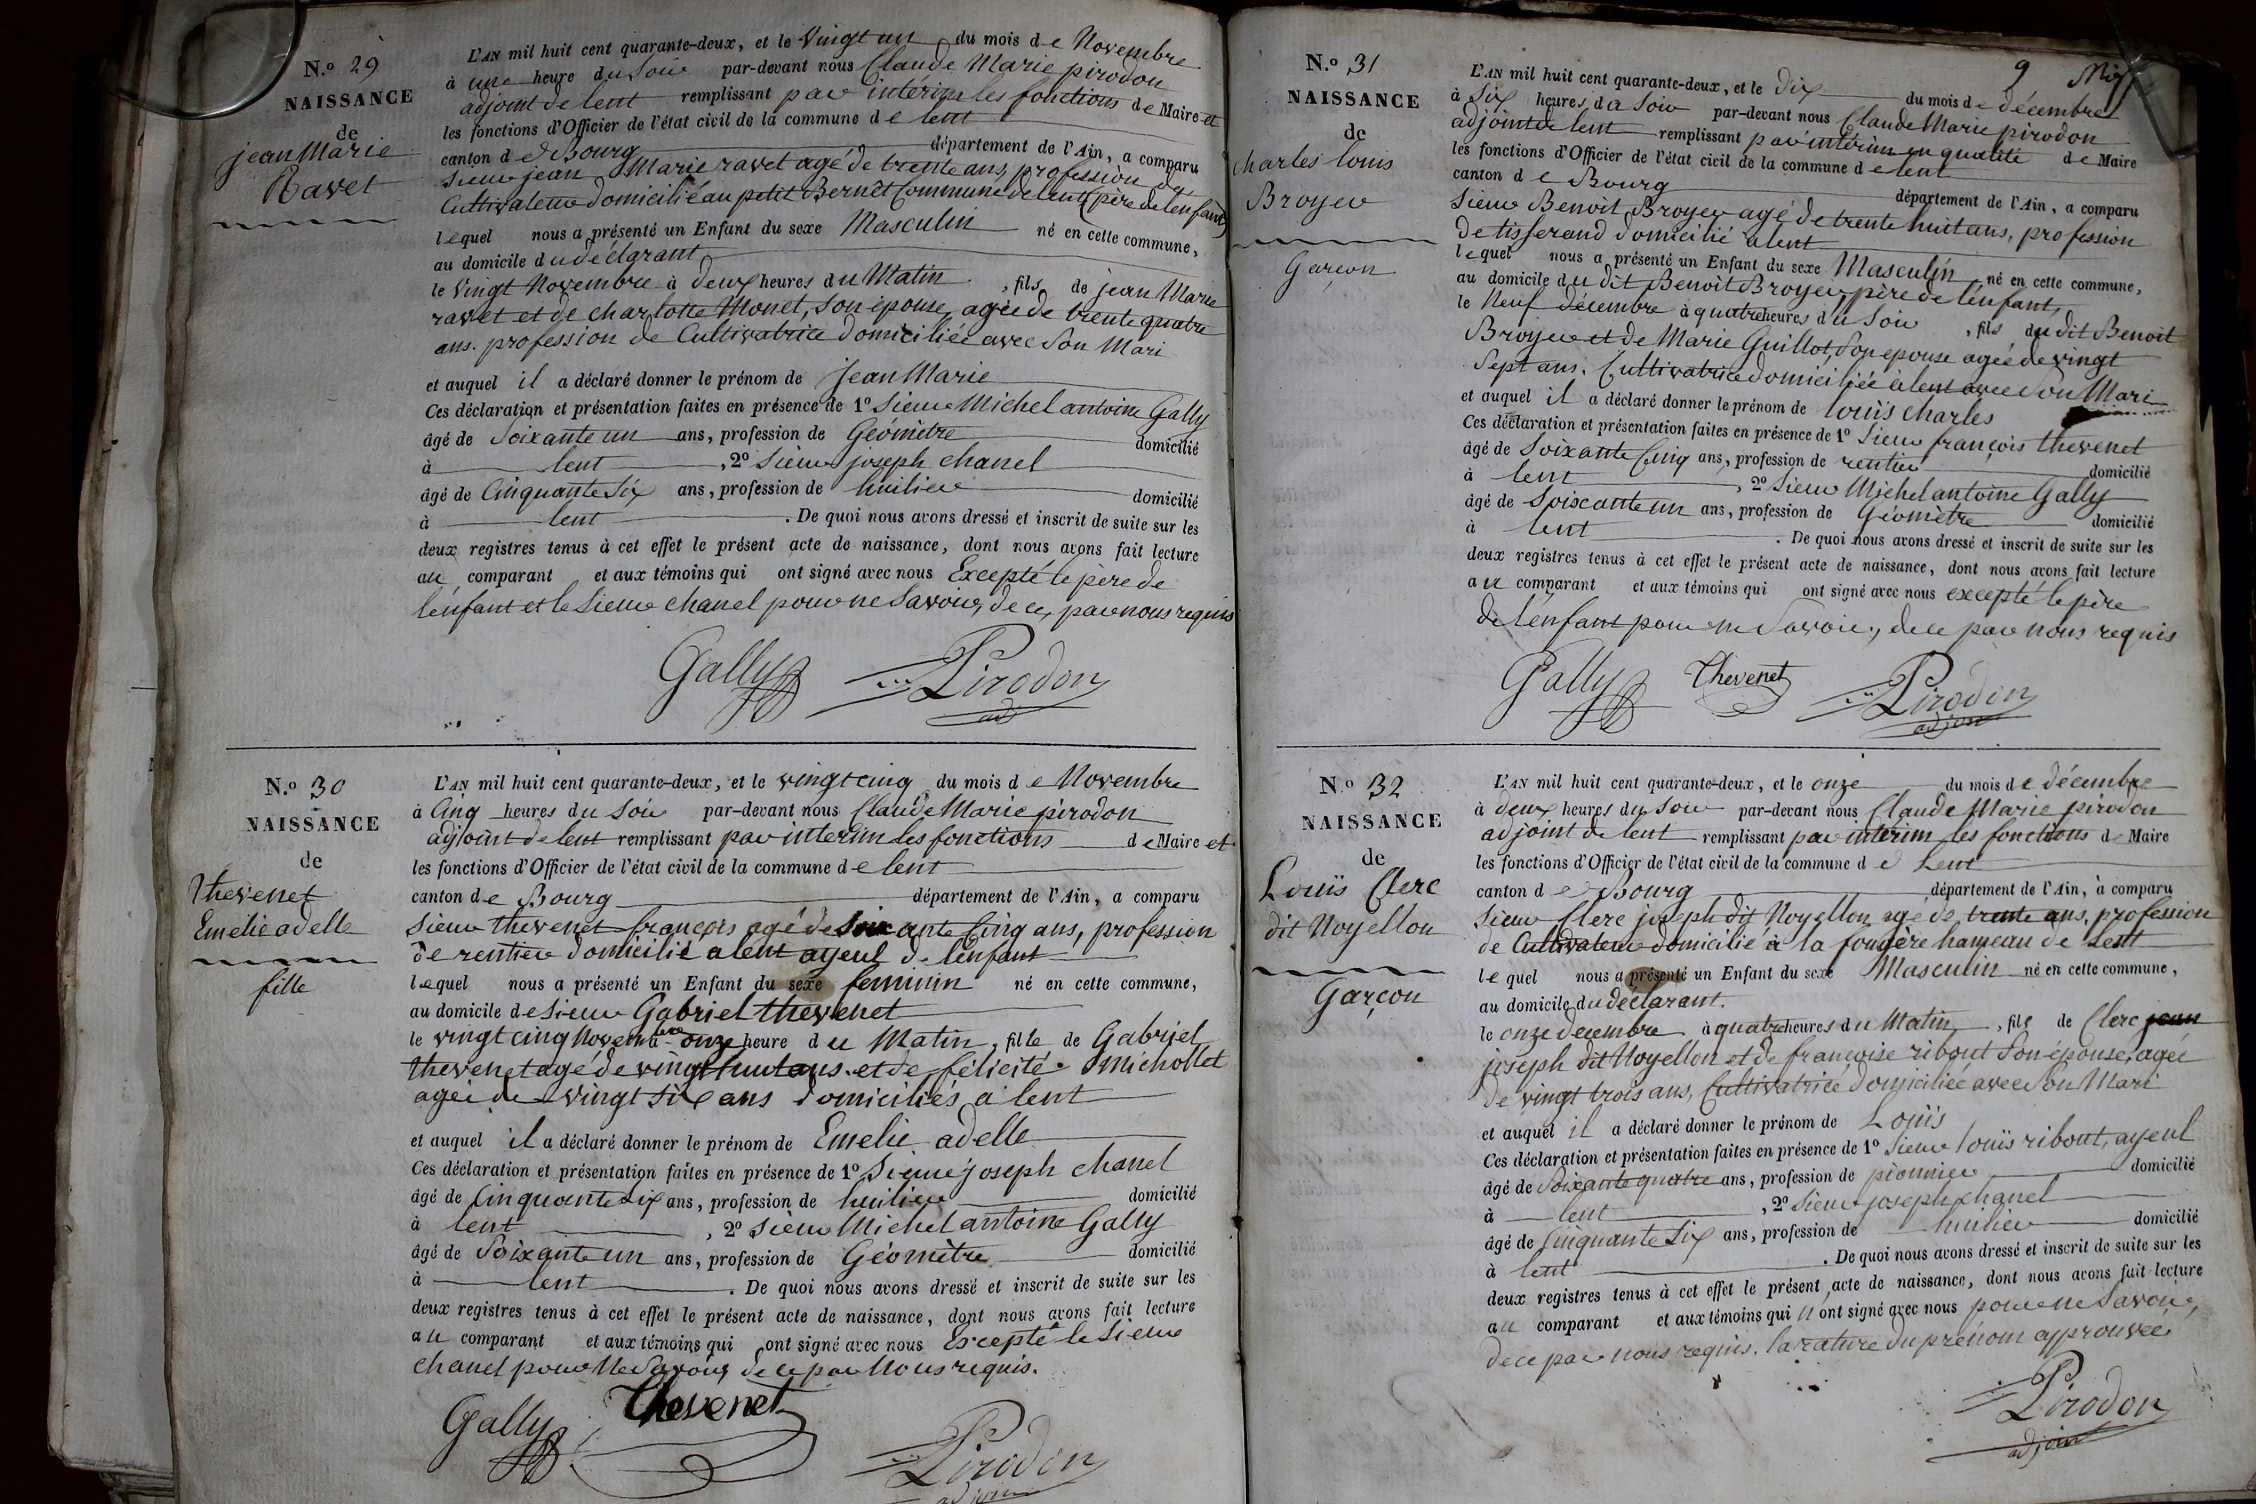 N.º 29
NAISSANCE
de
jean Marie
Ravet
L'AN mil huit cent quarante-deux, et le vingt un du mois de Novembre
à une heure du soir par-devant nous Claude Marie pirodon
adjoint de lent remplissant par intérim les fonctions de Maire et
les fonctions d'Officier de l'état civil de la commune de lent
canton de Bourg département de l'Ain, a comparu
Sieur jean Marie ravet agé de trente ans, profession de
Cultivateur domicilié au petit Bernet Commune de lent (père de l'enfant)
lequel nous a présenté un Enfant du sexe Masculin né en cette commune,
au domicile du déclarant
le vingt Novembre à deux heures du Matin, fils de jean Marie
ravet et de charlotte Monet, son épouse, agée de trente quatre
ans. profession de Cultivatrice domiciliée avec son Mari
et auquel il a déclaré donner le prénom de jean Marie
Ces déclaration et présentation faites en présence de 1º Sieur Michel antoine Gally
âgé de Soixante un ans, profession de Géomètre domicilié
à lent, 2º Sieur joseph chanel
âgé de Cinquante Six ans, profession de huilier domicilié
à lent. De quoi nous avons dressé et inscrit de suite sur les
deux registres tenus à cet effet le présent acte de naissance, dont nous avons fait lecture
au comparant et aux témoins qui ont signé avec nous Excepté le père de
l'enfant et le Sieur chanel pour ne Savoir, de ce, par nous requis
Gally Pirodon
adj
N.º 30
NAISSANCE
de
Thevenet
Emelie adelle
fille
L'AN mil huit cent quarante-deux, et le vingt cinq du mois de Novembre
à Cinq heures du soir par-devant nous Claude Marie pirodon
adjoint de lent remplissant par interim les fonctions de Maire et
les fonctions d'Officier de l'état civil de la commune de lent
canton de Bourg département de l'Ain, a comparu
Sieur thevenet françois agé de Soixante Cinq ans, profession
de rentier domicilié a lent ayeul de l'enfant
lequel nous a présenté un Enfant du sexe feminin né en cette commune,
au domicile de Sieur Gabriel thevenet
le vingt cinq Novembre à onze heure du Matin, fille de Gabriel
thevenet agé de vingt huit ans et de félicité Michollet
agée de vingt Six ans domiciliés a lent
et auquel il a déclaré donner le prénom de Emelie adelle
Ces déclaration et présentation faites en présence de 1º Sieur joseph chanel
âgé de Cinquante Six ans, profession de huilier domicilié
à lent, 2º Sieur Michel antoine Gally
âgé de Soixante un ans, profession de Géomètre domicilié
à lent. De quoi nous avons dressé et inscrit de suite sur les
deux registres tenus à cet effet le présent acte de naissance, dont nous avons fait lecture
au comparant et aux témoins qui ont signé avec nous Excepté le Sieur
chanel pour Ne Savoir, de ce par Nous requis.
Gally Thevenet Pirodon
9
N.º 31
NAISSANCE
de
charles louis
Broyer
Garçon
L'AN mil huit cent quarante-deux, et le dix du mois de décembre
à Six heures du Soir par-devant nous Claude Marie pirodon
adjoint de lent remplissant par intérim en qualité de Maire
les fonctions d'Officier de l'état civil de la commune de lent
canton de Bourg département de l'Ain, a comparu
Sieur Benoit Broyer agé de trente huit ans, profession
de tisserand domicilié a lent
lequel nous a présenté un Enfant du sexe Masculin né en cette commune,
au domicile du dit Benoit Broyer, père de l'enfant,
le Neuf décembre à quatre heures du Soir, fils du dit Benoit
Broyer et de Marie Guillot, Son epouse agée de vingt
Sept ans. Cultivatrice domiciliée à lent avec Son Mari
et auquel il a déclaré donner le prénom de louis charles
Ces déclaration et présentation faites en présence de 1º Sieur françois thevenet
âgé de Soixante Cinq ans, profession de rentier domicilié
à lent, 2º Sieur Michel antoine Gally
âgé de Soixante un ans, profession de Géomètre domicilié
à lent. De quoi nous avons dressé et inscrit de suite sur les
deux registres tenus à cet effet le présent acte de naissance, dont nous avons fait lecture
au comparant et aux témoins qui ont signé avec nous excepté le père
de l'enfant pour ne Savoir, de ce par nous requis
Gally Thevenet Pirodon
adjoint
N.º 32
NAISSANCE
de
Louis Clerc
dit Noyellon
Garçon
L'AN mil huit cent quarante-deux, et le onze du mois de décembre
à deux heures du soir par-devant nous Claude Marie pirodon
adjoint de lent remplissant par interim les fonctions de Maire
les fonctions d'Officier de l'état civil de la commune de Lent
canton de Bourg département de l'Ain, a comparu
Sieur Clerc joseph dit Noyellon agé de trente ans, profession
de Cultivateur domicilié à la fougère hameau de Lent
lequel nous a présenté un Enfant du sexe Masculin né en cette commune,
au domicile du déclarant.
le onze decembre à quatre heures du Matin, fils de Clerc jean
joseph dit Noyellon et de françoise ribout Son épouse, agée
de vingt trois ans, Cultivatrice domiciliée avec Son Mari
et auquel il a déclaré donner le prénom de Loüis
Ces déclaration et présentation faites en présence de 1º Sieur louis ribout, ayeul
âgé de Soixante quatre ans, profession de pionnier domicilié
à lent, 2º Sieur joseph chanel
âgé de Cinquante Six ans, profession de huilier domicilié
à lent. De quoi nous avons dressé et inscrit de suite sur les
deux registres tenus à cet effet le présent acte de naissance, dont nous avons fait lecture
au comparant et aux témoins qui n'ont signé avec nous pour ne Savoir,
de ce par nous requis. la rature du prénom approuvée
Pirodon
adjoint